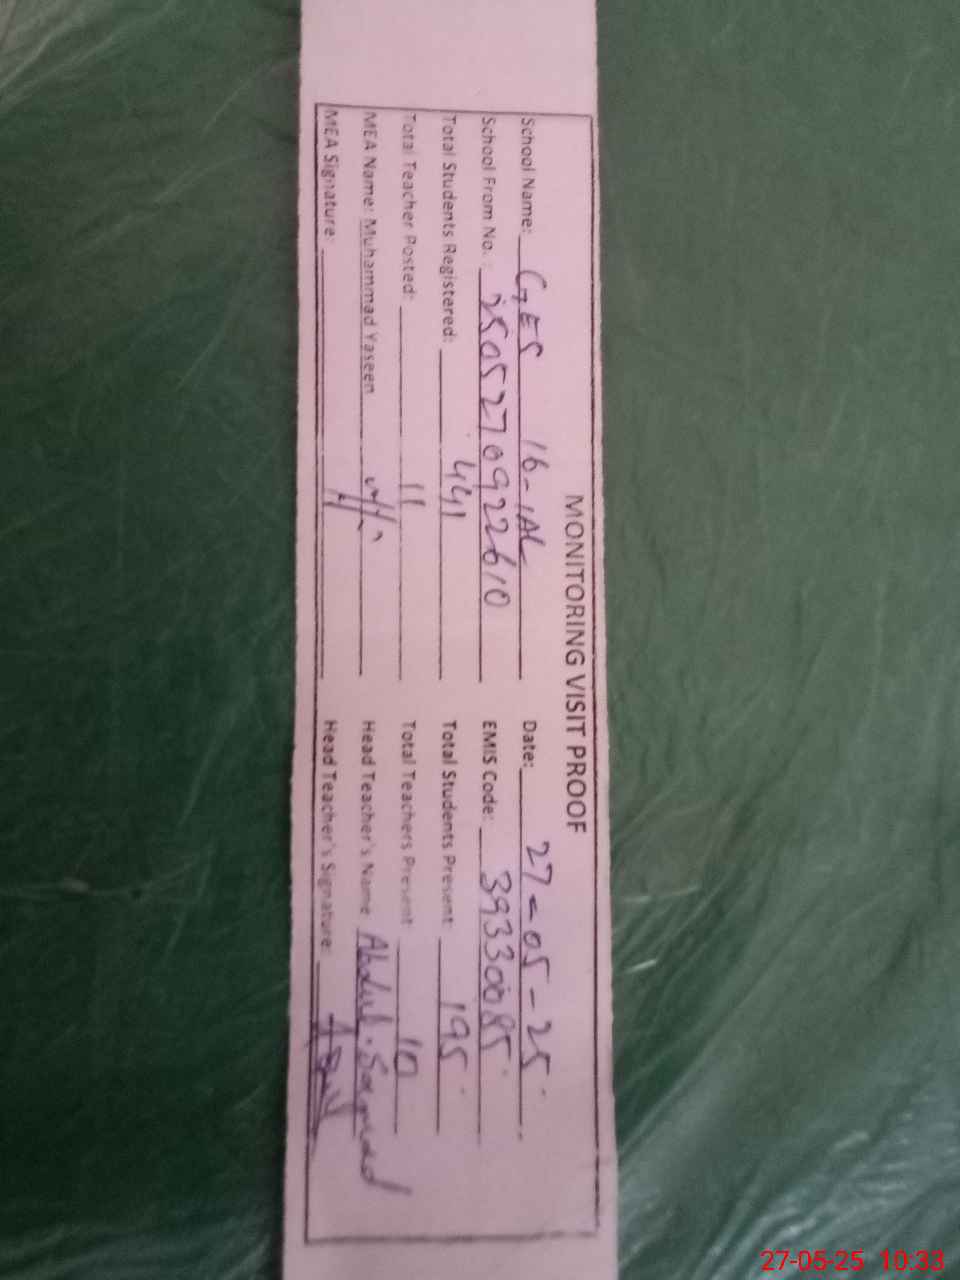 MONITORING VISIT PROOF
School Name: GES 16-1AL Date: 27-05-25
School From No.: 2505270922610 EMIS Code: 39330085
Total Students Registered: 441 Total Students Present: 195
Total Teacher Posted: 11 Total Teachers Present: 10
MEA Name: Muhammad Yaseen Head Teacher's Name Abdul
MEA Signature: Head Teacher's Signature:
27-05-25 10:33